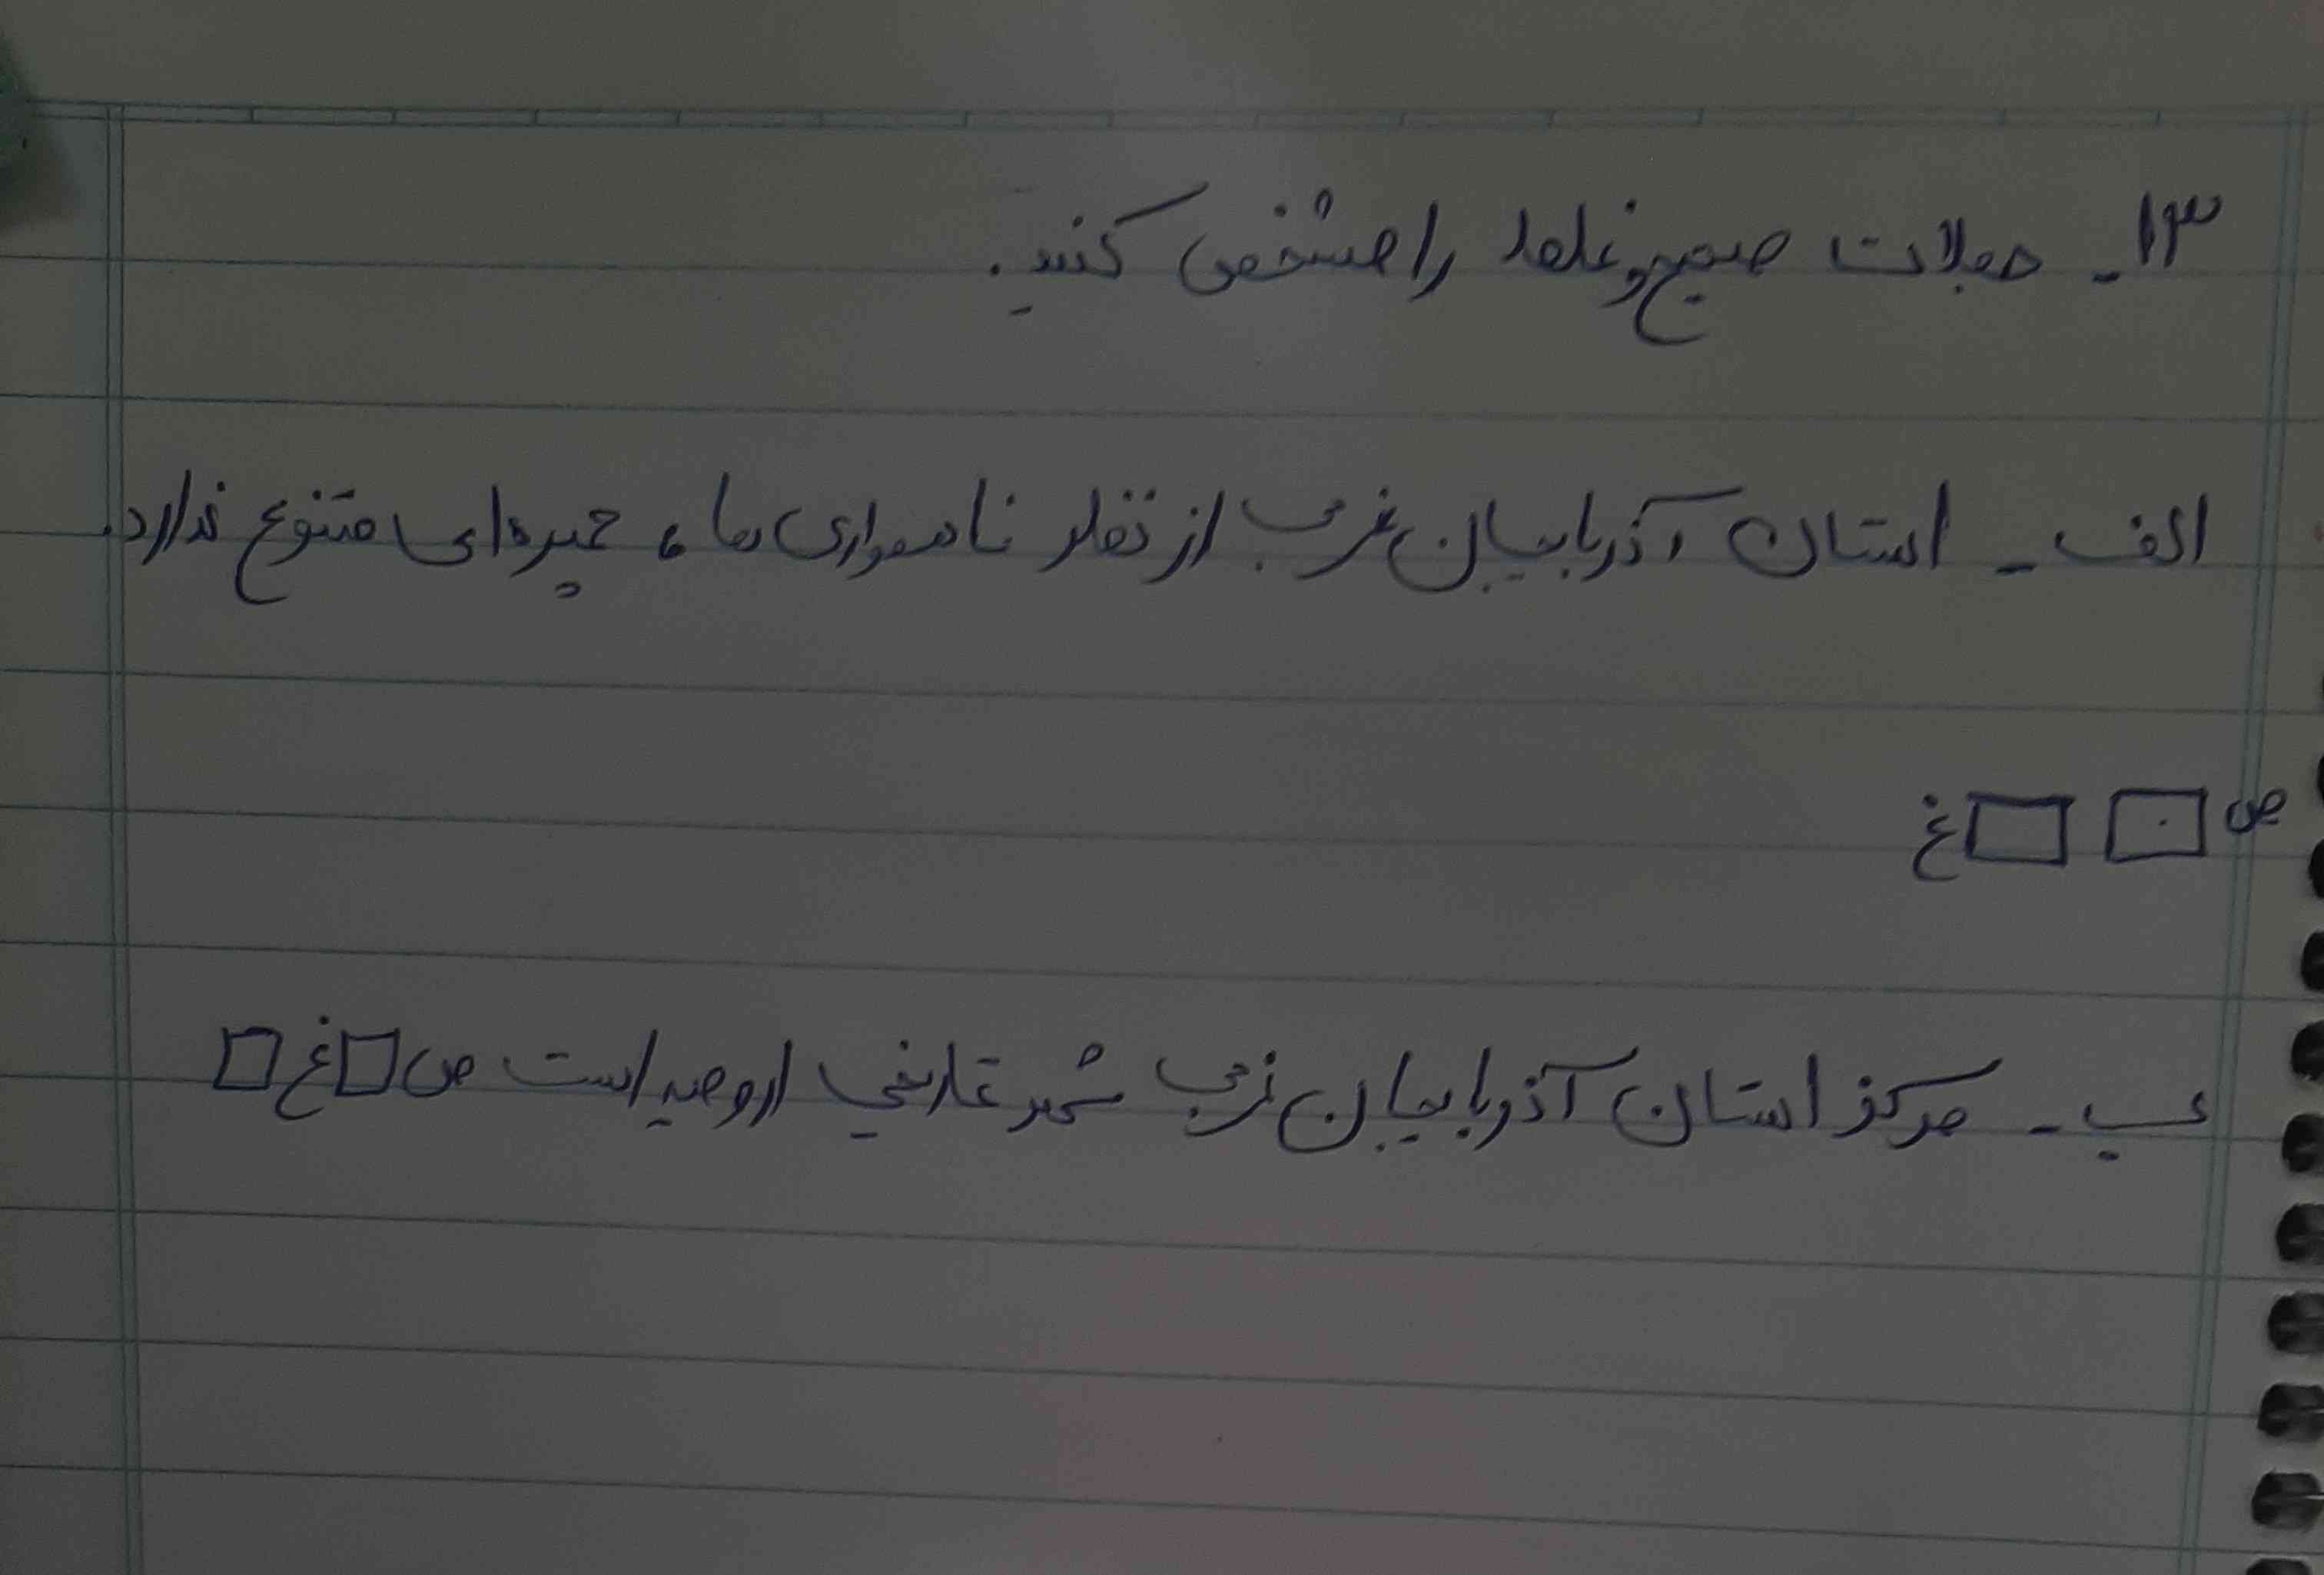 ۱۳- جملات صحیح و غلط را مشخص کنید.
الف - استان آذربایجان غربی از نظر ناهمواری ها، چهره‌ای متنوع ندارد.
ص □ □ غ
ب - مرکز استان آذربایجان غربی شهر تاریخی ارومیه است ص □ غ □